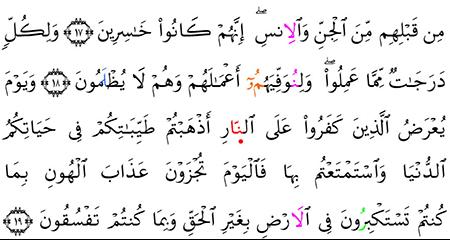 مِن قَبْلِهِم مِّنَ ٱلْجِنِّ وَٱلِانسِ ۖ إِنَّهُمْ كَانُوا۟ خَـٰسِرِينَ ﴿١٧﴾ وَلِكُلٍّۢ
دَرَجَـٰتٌۭ مِّمَّا عَمِلُوا۟ ۖ وَلِنُوَفِّيَهُمُۥٓ أَعْمَـٰلَهُمْ وَهُمْ لَا يُظْلَمُونَ ﴿١٨﴾ وَيَوْمَ
يُعْرَضُ ٱلَّذِينَ كَفَرُوا۟ عَلَى ٱلنّ۪ارِ أَذْهَبْتُمْ طَيِّبَـٰتِكُمْ فِى حَيَاتِكُمُ
ٱلدُّنْيَا وَٱسْتَمْتَعْتُم بِهَا فَٱلْيَوْمَ تُجْزَوْنَ عَذَابَ ٱلْهُونِ بِمَا
كُنتُمْ تَسْتَكْبِرُونَ فِى ٱلَارْضِ بِغَيْرِ ٱلْحَقِّ وَبِمَا كُنتُمْ تَفْسُقُونَ ﴿١٩﴾